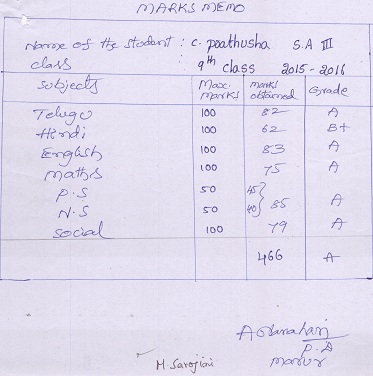 MARKS MEMO
Name of the student : C. Prathusha S.A III
class 9th class 2015-2016
Subjects Max. marks marks obtained Grade
Telugu 100 82 A
Hindi 100 62 B+
English 100 83 A
maths 100 75 A
P.S 50 45
N.S 50 40 85 A
Social 100 79 A
466 A
P.A
M. Sarojini